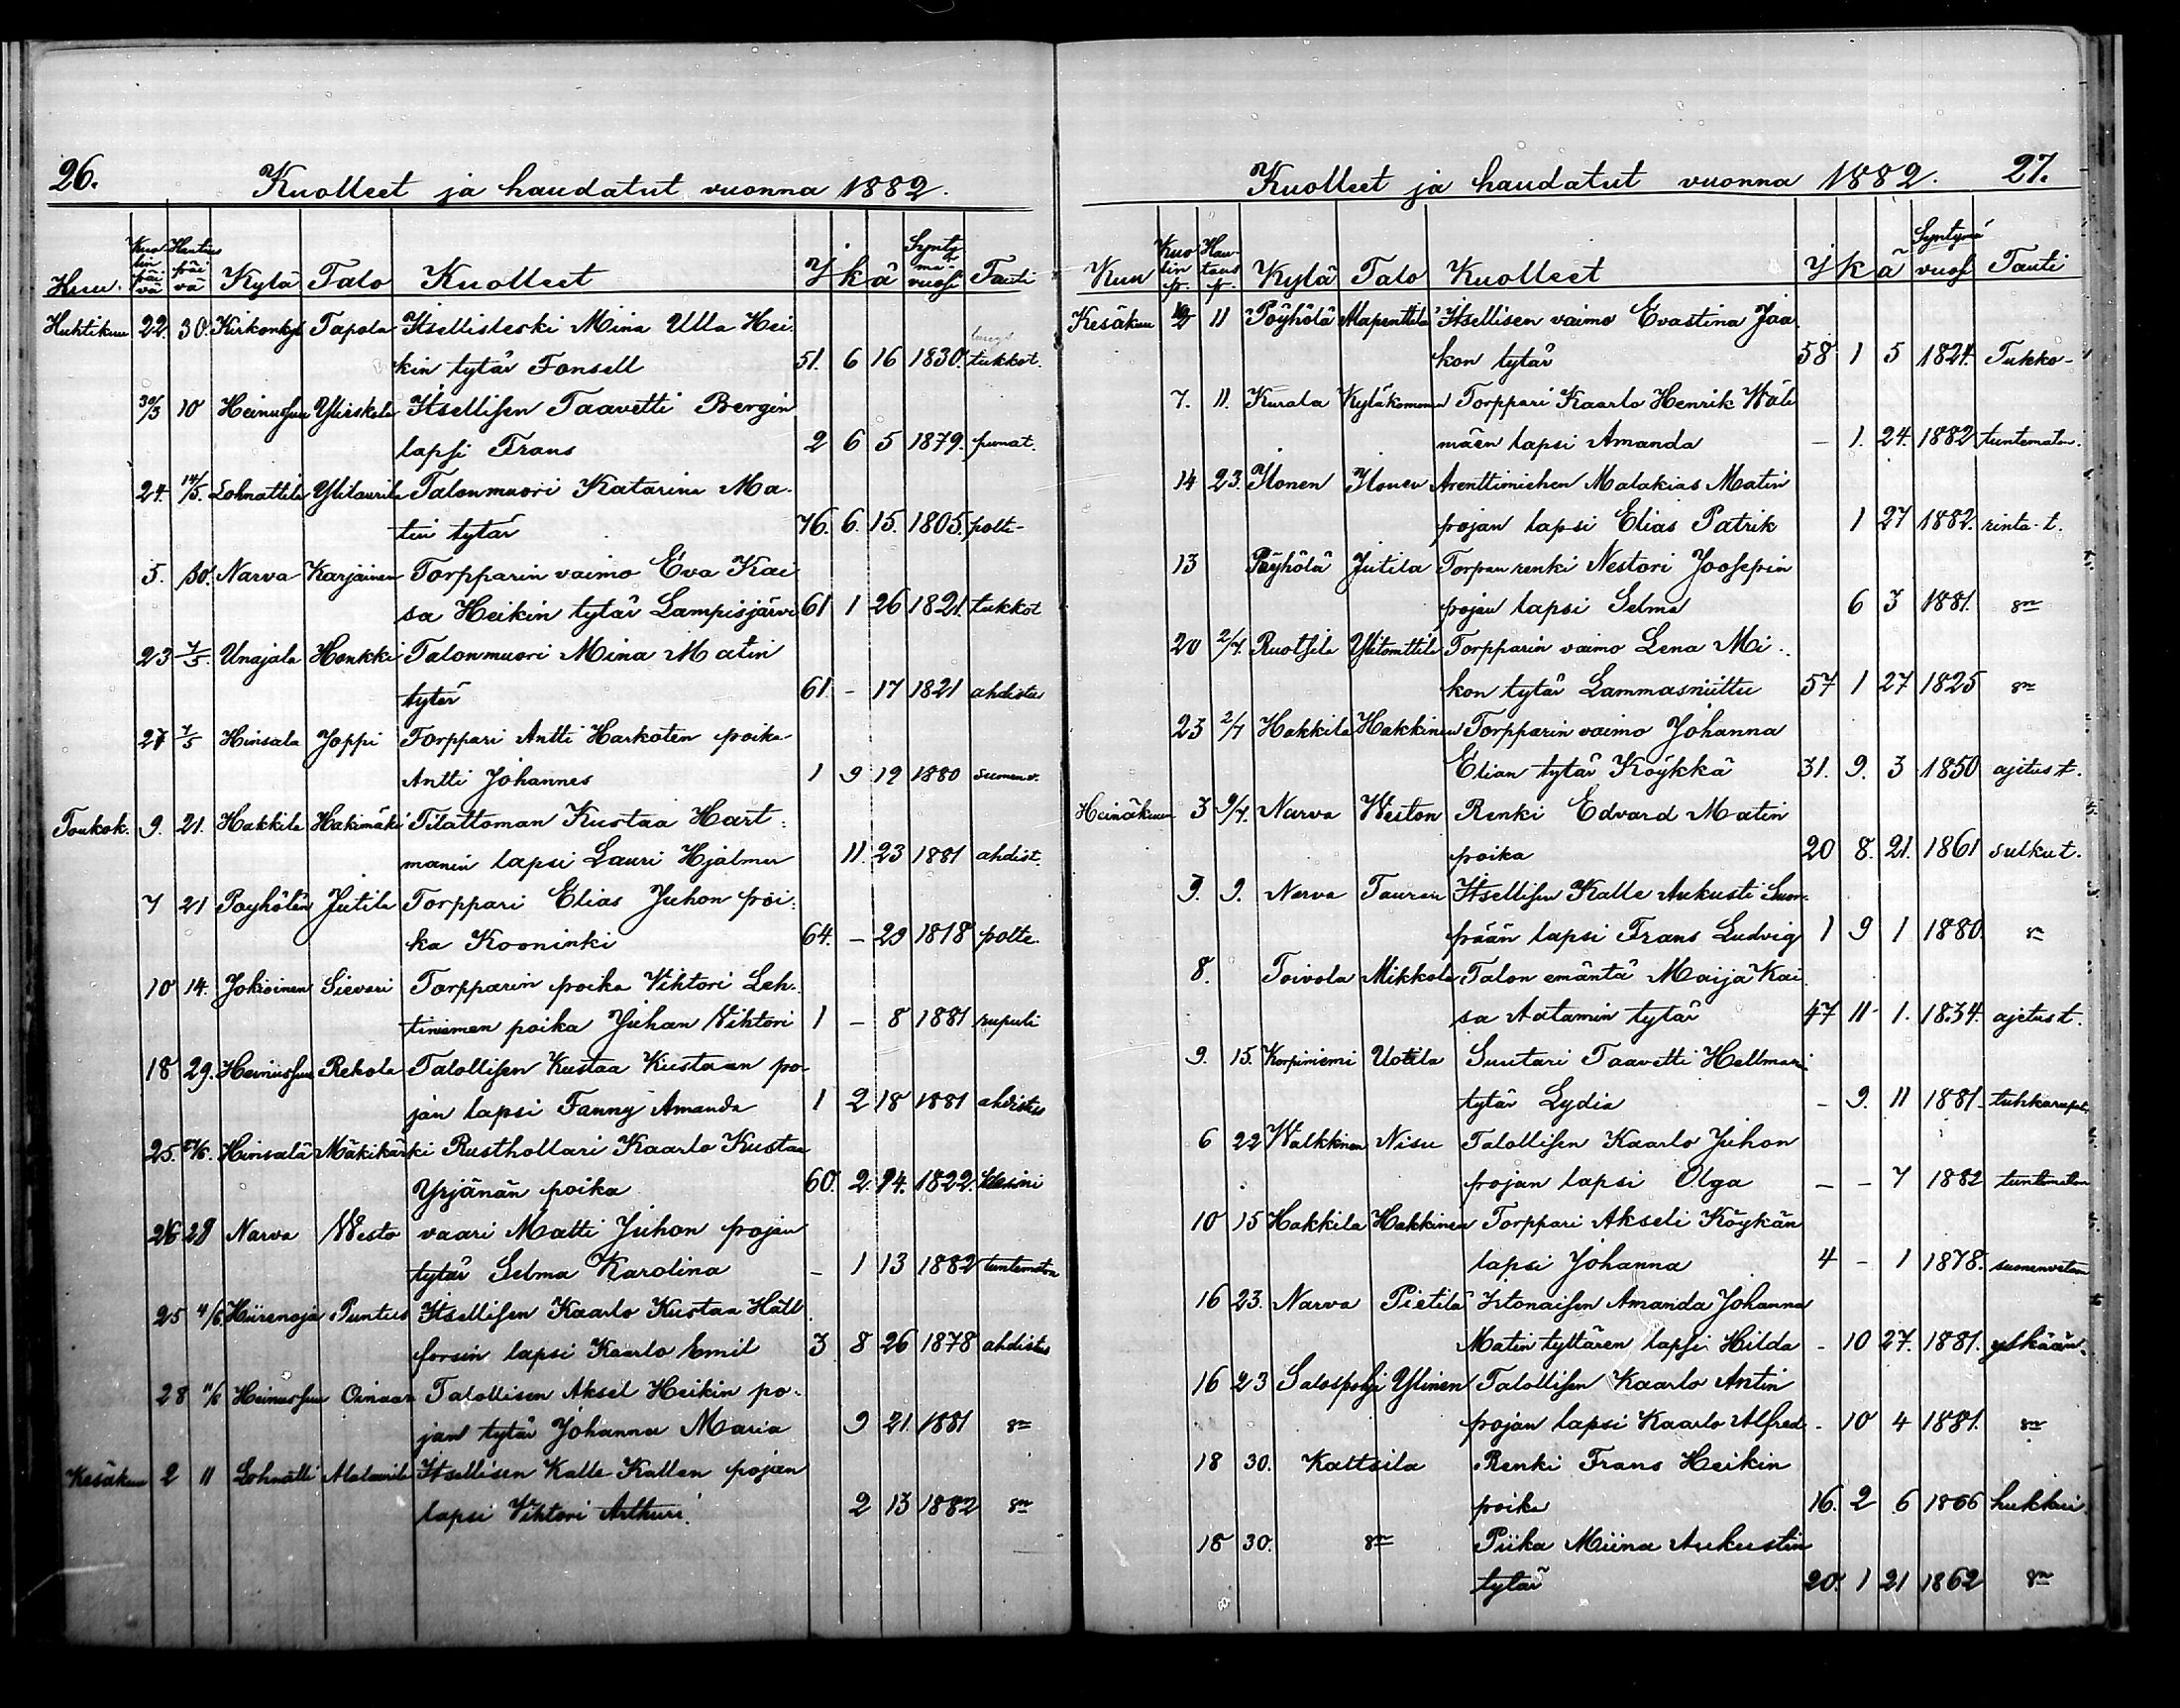 26.
Kuolleet ja haudatut vuonna 1882.
Kuu. Kuolin päivä Hautaus päivä Kylä Talo Kuolleet V k ä Syntymä vuosi Tauti
Huhtikuu 22. 30. Kirkonkyl Tapola Itsellisleski Mina Ulla Hei
kin tytär Fonsell 51. 6 16 1830. tukkot.
30/3 10 Heinusuu Ylieskola Itsellisen Taavetti Bergin
lapsi Frans 2 6 5 1879. punat.
24. 14/5. Lohnattila Ylitaurila Talonmuori Katarina Ma-
tin tytär 76. 6. 15. 1805. poltt-
5. 30. Narva Karjainen Torpparin vaimo Eva Kai
sa Heikin tytär Lampisjärvi 61 1 26 1821. tukkot
23 7/5. Unajala Honkki Talonmuori Mina Matin
tytär 61. - 17 1821 ahdistus
27 7/5 Hinsala Joppi Torppari Antti Harkoten poika
Antti Johannes 1 9 19 1880 suonenv.
Toukok. 9. 21. Hakkila Hakimäki Tilattoman Kustaa Hart-
manin lapsi Lauri Hjalmer 11. 23 1881 ahdist.
7 21 Poyhölän Jutila Torppari Elias Juhon poi-
ka Kooninki 64. - 29 1818 poltt.
10 14. Jokioinen Sieveri Torpparin poika Vihtori Leh-
tiniemen poika Juhan Vihtori 1 - 8 1881 rupuli
18 29. Heinusuu Rekola Talollisen Kustaa Kustaan po-
jan lapsi Fanny Amanda 1 2 18 1881 ahdistus
25. Hinsalä Mäkikärki Rusthollari Kaarlo Kustaa
Yrjänän poika 60. 2. 24. 1822.
26 28 Narva Westo vaari Matti Juhon pojan
tytär Selma Karolina - 1 13 1882 tuntematon
25 4/6. Hiirenoja Puntus Itsellisen Kaarlo Kustaa Häll
forsin lapsi Kaarlo Emil 3 8 26 1878 ahdistus
28 11/6 Heinusuu Oinaan Talollisen Aksel Heikin po-
jan tytär Johanna Maria 9 21. 1881 sn
Kesäkuu 2 11 Lohnatti Alataurila Itsellisen Kalle Kallen pojan
lapsi Vihtori Arthuri. 2 13 1882 sn
Kuolleet ja haudatut vuonna 1882. 27.
Kuu Kuolin p. Hautaus p. Kylä Talo Kuolleet V k ä Syntymä vuosi Tauti
Kesäkuu 2 11 Pöyhölä Alapenttilä Itsellisen vaimo Evastina Jaa
kon tytär 58 1 5 1824. Tukko-
7. 11. Kurala Kyläkomonen Torppari Kaarlo Henrik Wäli
mäen lapsi Amanda - 1. 24. 1882 tuntematon.
14 23. Ilonen Ilonen Arenttimiehen Malakias Matin
pojan lapsi Elias Patrik 1 27 1882. rinta-t.
13 Pöyhölä Jutila Torpan renki Nestori Joosepin
pojan lapsi Selma 6 3 1881. sn
20 2/7. Ruotsila Ylitonttila Torpparin vaimo Lena Mi-
kon tytär Lammasniittu 57 1 27 1825 sn
23 2/7 Hakkila Hakkinen Torpparin vaimo Johanna
Elian tytär Köykkä 31. 9. 3 1850 ajetust.
Heinäkuu 3 9/7. Narva Weston Renki Edvard Matin
poika 20 8. 21. 1861 sulkut.
9. 9. Narva Tauren Itsellisen Kalle Aukusti Suon-
pään lapsi Frans Ludvig 1 9 1 1880. sn
8. Toivola Mikkola Talon emäntä Maija Kai
sa Aatamin tytär 47 11 1. 1834. ajetust.
9. 15. Korpiniemi Uotila Suutari Taavetti Hellmani
tytär Lydia - 9. 11 1881. tuhkarupul.
6 22 Walkkinen Nisu Talollisen Kaarlo Juhon
pojan lapsi Olga - - 7 1882 tuntematon
10 15 Hakkila Hakkinen Torppari Akseli Köykän
lapsi Johanna 4 - 1 1878. suonenvetoon
16 23. Narva Pietilä Irtonaisen Amanda Johanna
Matin tyttären lapsi Hilda - 10 27. 1881.
16 23 Salospohja Ylinen Talollisen Kaarlo Antin
pojan lapsi Kaarlo Alfred - 10 4 1881. sn
18 30. Kaltsila Renki Frans Heikin
poika 16. 2 6 1866 hukkui.
18 30. sn Piika Miina Aukustin
tytär 20. 1 21 1862 sn